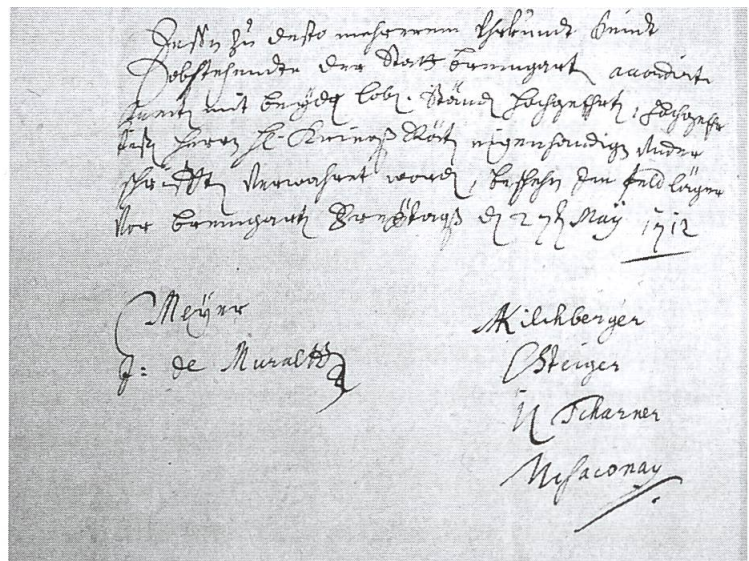 Dessen zu desto mehrerem Uhrkundt seindt
obstehende der Statt bremgarten accordirte
Puncten mit beyder lob. Ständen hochgeehrten, hochgeehr
testen herren H. Kriegß Räht eigenhändigen Under
schrifften verwahret worden, beschehen Im feldläger
Vor bremgarten Freytagß den 27ten May 1712
Meÿer
J: de Muralt
Kilchberger
Steiger
Tscharner
Saconay